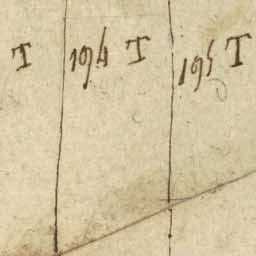 T 194 T 195 T